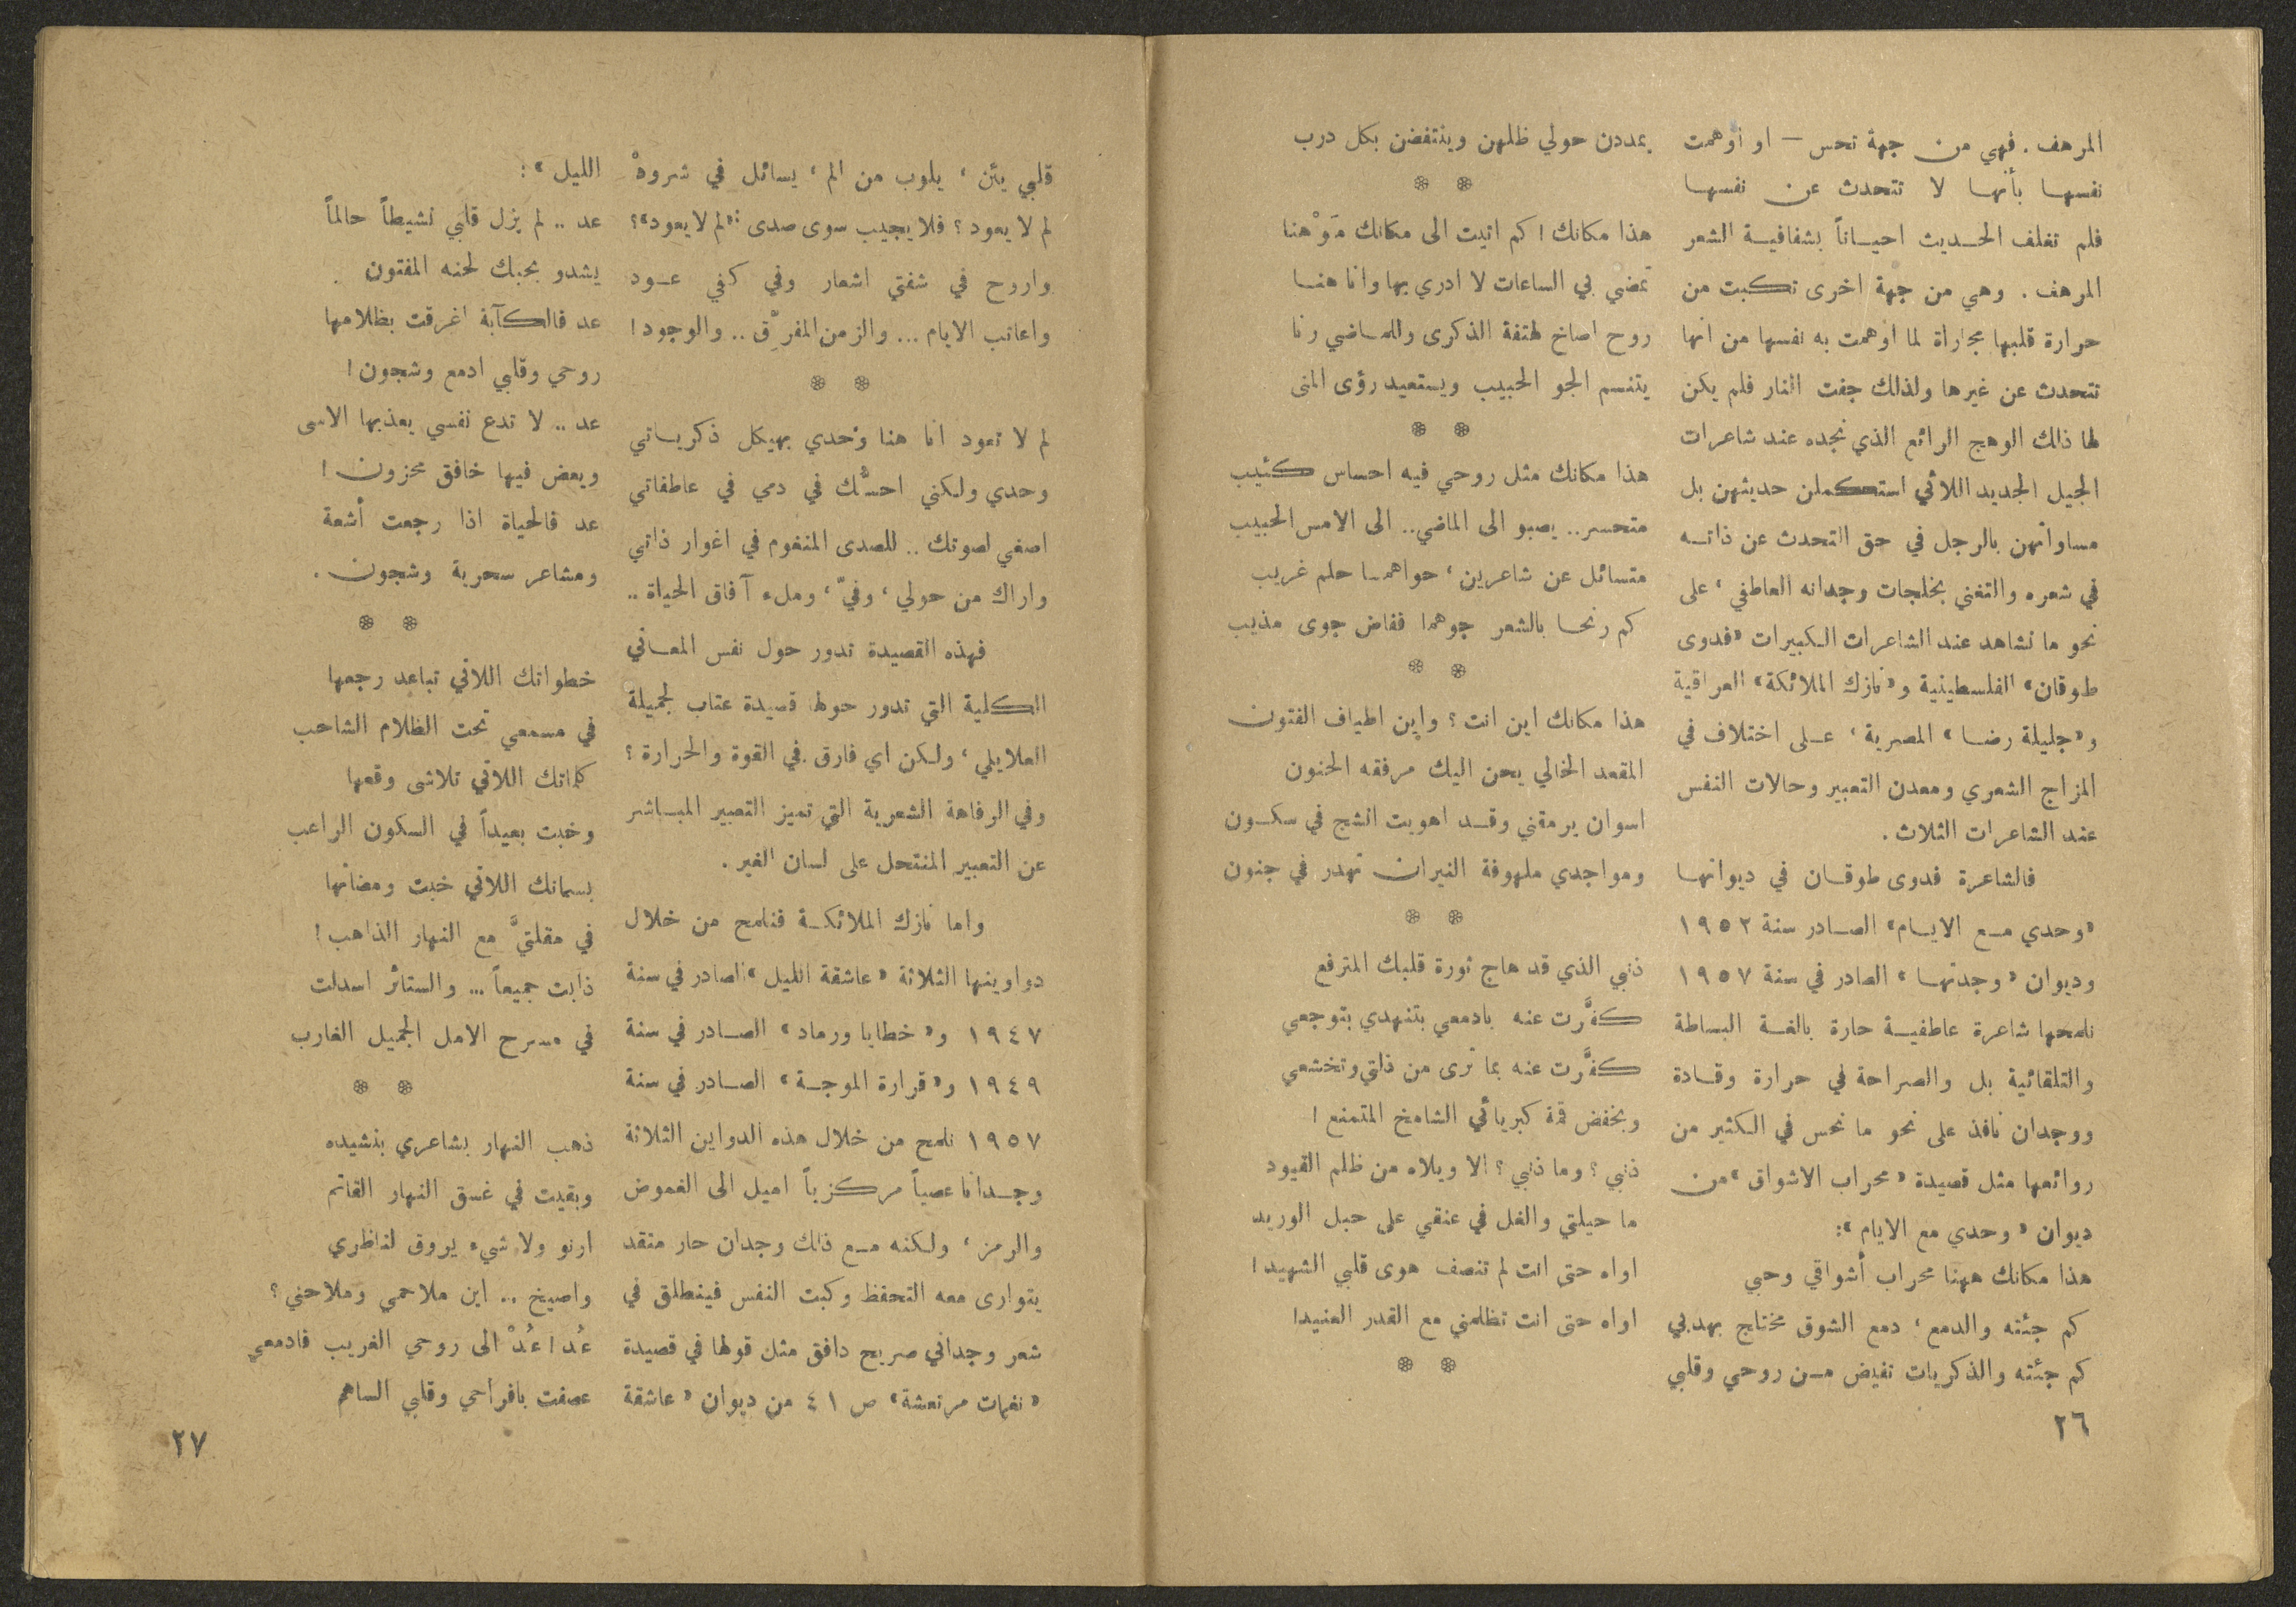 المرهف . فهي من جهة تحس — او أوهمت
نفسها بأنها لا تتحدث عن نفسها
فلم تغلف الحديث احياناً بشفافية الشعر
المرهف . وهي من جهة اخرى تكبت من
حرارة قلبها مجاراة لما اوهمت به نفسها من انها
تتحدث عن غيرها ولذلك جفت النار فلم يكن
لها ذلك الوهج الرائع الذي نجده عند شاعرات
الجيل الجديد اللاتي استكملن حديثهن بل
مساواتهن بالرجل في حق التحدث عن ذاته
في شعره والتغني بخلجات وجدانه العاطفي ، على
نحو ما نشاهد عند الشاعرات الكبيرات «فدوى
طوقان» الفلسطينية و«نازك الملائكة» العراقية
و«جليلة رضا» المصرية ، على اختلاف في
المزاج الشعري ومعدن التعبير وحالات النفس
عند الشاعرات الثلاث .
فالشاعرة فدوى طوقان في ديوانها
«وحدي مع الايام» الصادر سنة ١٩٥٢
وديوان «وجدتها» الصادر في سنة ١٩٥٧
نلمحها شاعرة عاطفية حارة بالغة البساطة
والتلقائية بل والصراحة في حرارة وقادة
ووجدان نافذ على نحو ما نحس في الكثير من
روائعها مثل قصيدة «محراب الاشواق» من
ديوان «وحدي مع الايام» :
هذا مكانك ههنا محراب أشواقي وحبي
كم جئته والدمع ، دمع الشوق مختلج بهدبي
كم جئته والذكريات تفيض من روحي وقلبي
٢٦
يمددن حولي ظلهن وينتفضن بكل درب
هذا مكانك ! كم اتيت الى مكانك مَوْهنا
تمضي بي الساعات لا ادري بها وانا هنا
روح اصاخ لهتفة الذكرى وللماضي رنا
يتنسم الجو الحبيب ويستعيد رؤى المنى
هذا مكانك مثل روحي فيه احساس كئيب
متحسر .. يصبو الى الماضي .. الى الامس الحبيب
متسائل عن شاعرين ، حواهما حلم غريب
كم رنحا بالشعر جوهما ففاض جوى مذيب
هذا مكانك اين انت ؟ واين اطياف الفتون
المقعد الخالي يحن اليك مرفقه الحنون
اسوان يرمقني وقد اهويت انشج في سكون
ومواجدي ملهوفة النيران تهدر في جنون
ذنبي الذي قد هاج ثورة قلبك المترفع
كفَّرت عنه بادمعي بتنهدي بتوجعي
كفَّرت عنه بما ترى من ذلتي وتخشعي
وبخفض قمة كبريائي الشامخ المتمنع !
ذنبي ؟ وما ذنبي ؟ الا ويلاه من ظلم القيود
ما حيلتي والغل في عنقي على حبل الوريد
اواه حتى انت لم تنصف هوى قلبي الشهيد !
اواه حتى انت تظلمني مع القدر العنيد !
قلبي يئن ، يلوب من الم ، يسائل في شرودْ
لم لا يعود ؟ فلا يجيب سوى صدى : «لم لا يعود» ؟
واروح في شفتي اشعار وفي كفي عود
واعاتب الايام ... والزمن المفرِّق .. والوجود !
لم لا تعود انا هنا وحدي بهيكل ذكرياتي
وحدي ولكني احسُّك في دمي في عاطفاتي
اصغي لصوتك .. للصدى المنغوم في اغوار ذاتي
واراك من حولي ، وفيّ ، وملء آفاق الحياة ..
فهذه القصيدة تدور حول نفس المعاني
الكلية التي تدور حولها قصيدة عتاب لجميلة
العلايلي ، ولكن اي فارق في القوة والحرارة ؟
وفي الرفاهة الشعرية التي تميز التعبير المباشر
عن التعبير المنتحل على لسان الغير .
واما نازك الملائكة فنلمح من خلال
دواوينها الثلاثة «عاشقة الليل» الصادر في سنة
١٩٤٧ و«خطايا ورماد» الصادر في سنة
١٩٤٩ و«قرارة الموجة» الصادر في سنة
١٩٥٧ نلمح من خلال هذه الدواوين الثلاثة
وجداناً عصياً مركزياً اميل الى الغموض
والرمز ، ولكنه مع ذلك وجدان حار متقد
يتوارى معه التحفظ وكبت النفس فينطلق في
شعر وجداني صريح دافق مثل قولها في قصيدة
«نغمات مرتعشة» ص ٤١ من ديوان «عاشقة
الليل» :
عد .. لم يزل قلبي نشيطاً حالماً
يشدو بحبك لحنه المفتون .
عد فالكآبة اغرقت بظلامها
روحي وقلبي ادمع وشجون !
عد .. لا تدع نفسي يعذبها الاسى
ويعض فيها خافق محزون !
عد فالحياة اذا رجعت أشعة
ومشاعر سحرية وشجون .
خطواتك اللاتي تباعد رجعها
في مسمعي تحت الظلام الشاحب
كلماتك اللاتي تلاشى وقعها
وخبت بعيداً في السكون الراعب
بسماتك اللاتي خبت ومضاتها
في مقلتيَّ مع النهار الذاهب !
ذابت جميعاً ... والستائر اسدلت
في مسرح الامل الجميل الغارب
ذهب النهار بشاعري بنشيده
وبقيت في غسق النهار القاتم
ارنو ولا شيء يروق لناظري
واصيخ .. اين ملاحمي وملاحني ؟
عُد ! عُدْ الى روحي الغريب فادمعي
عصفت بافراحي وقلبي الساهم
٢٧